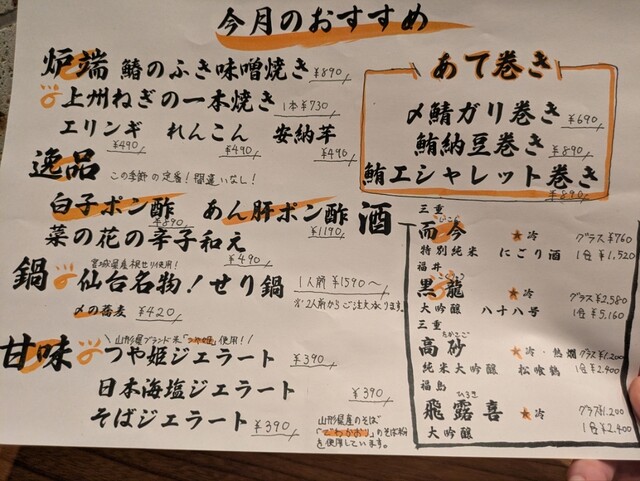 今月のおすすめ
炉端 鰆のふき味噌焼き ¥890
上州ねぎの一本焼き 1本¥730
エリンギ ¥490 れんこん ¥490 安納芋 ¥490
逸品 この季節の定番!間違いなし!
白子ポン酢 ¥890 あん肝ポン酢 ¥1190
菜の花の辛子和え ¥490
宮城県産根せり使用!
鍋 仙台名物!せり鍋 1人前¥1590〜
※2人前からご注文承ります。
〆の蕎麦 ¥420
山形産ブランド米「つや姫」使用!
甘味 つや姫ジェラート ¥390
日本海塩ジェラート ¥390
そばジェラート ¥390
山形県産のそば
「でわかおり」のそば粉
を使用しています。
あて巻き
〆鯖ガリ巻き ¥690
鮪納豆巻き ¥890
鮪エシャレット巻き ¥890
酒
三重
而今 ★冷 グラス¥760
特別純米 にごり酒 1合¥1,520
福井
黒龍 ★冷 グラス¥2,580
大吟醸 八十八号 1合¥5,160
三重 たかさご
高砂 ★冷・熱燗 グラス¥1,200
純米大吟醸 松喰鶴 1合¥2,400
福島 ひろき
飛露喜 ★冷 グラス¥1,200
大吟醸 1合¥2,400